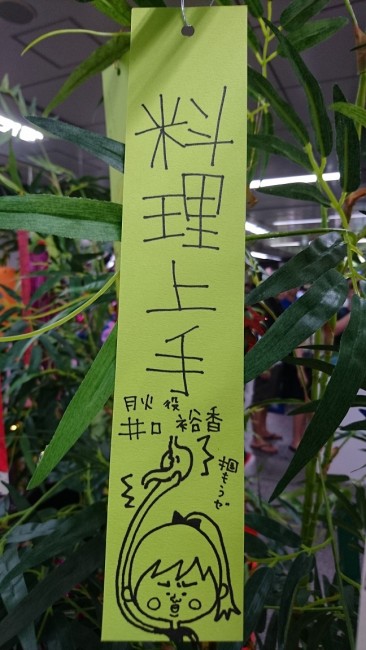 料理上手
月火 役
井口 裕香
掴もうぜ